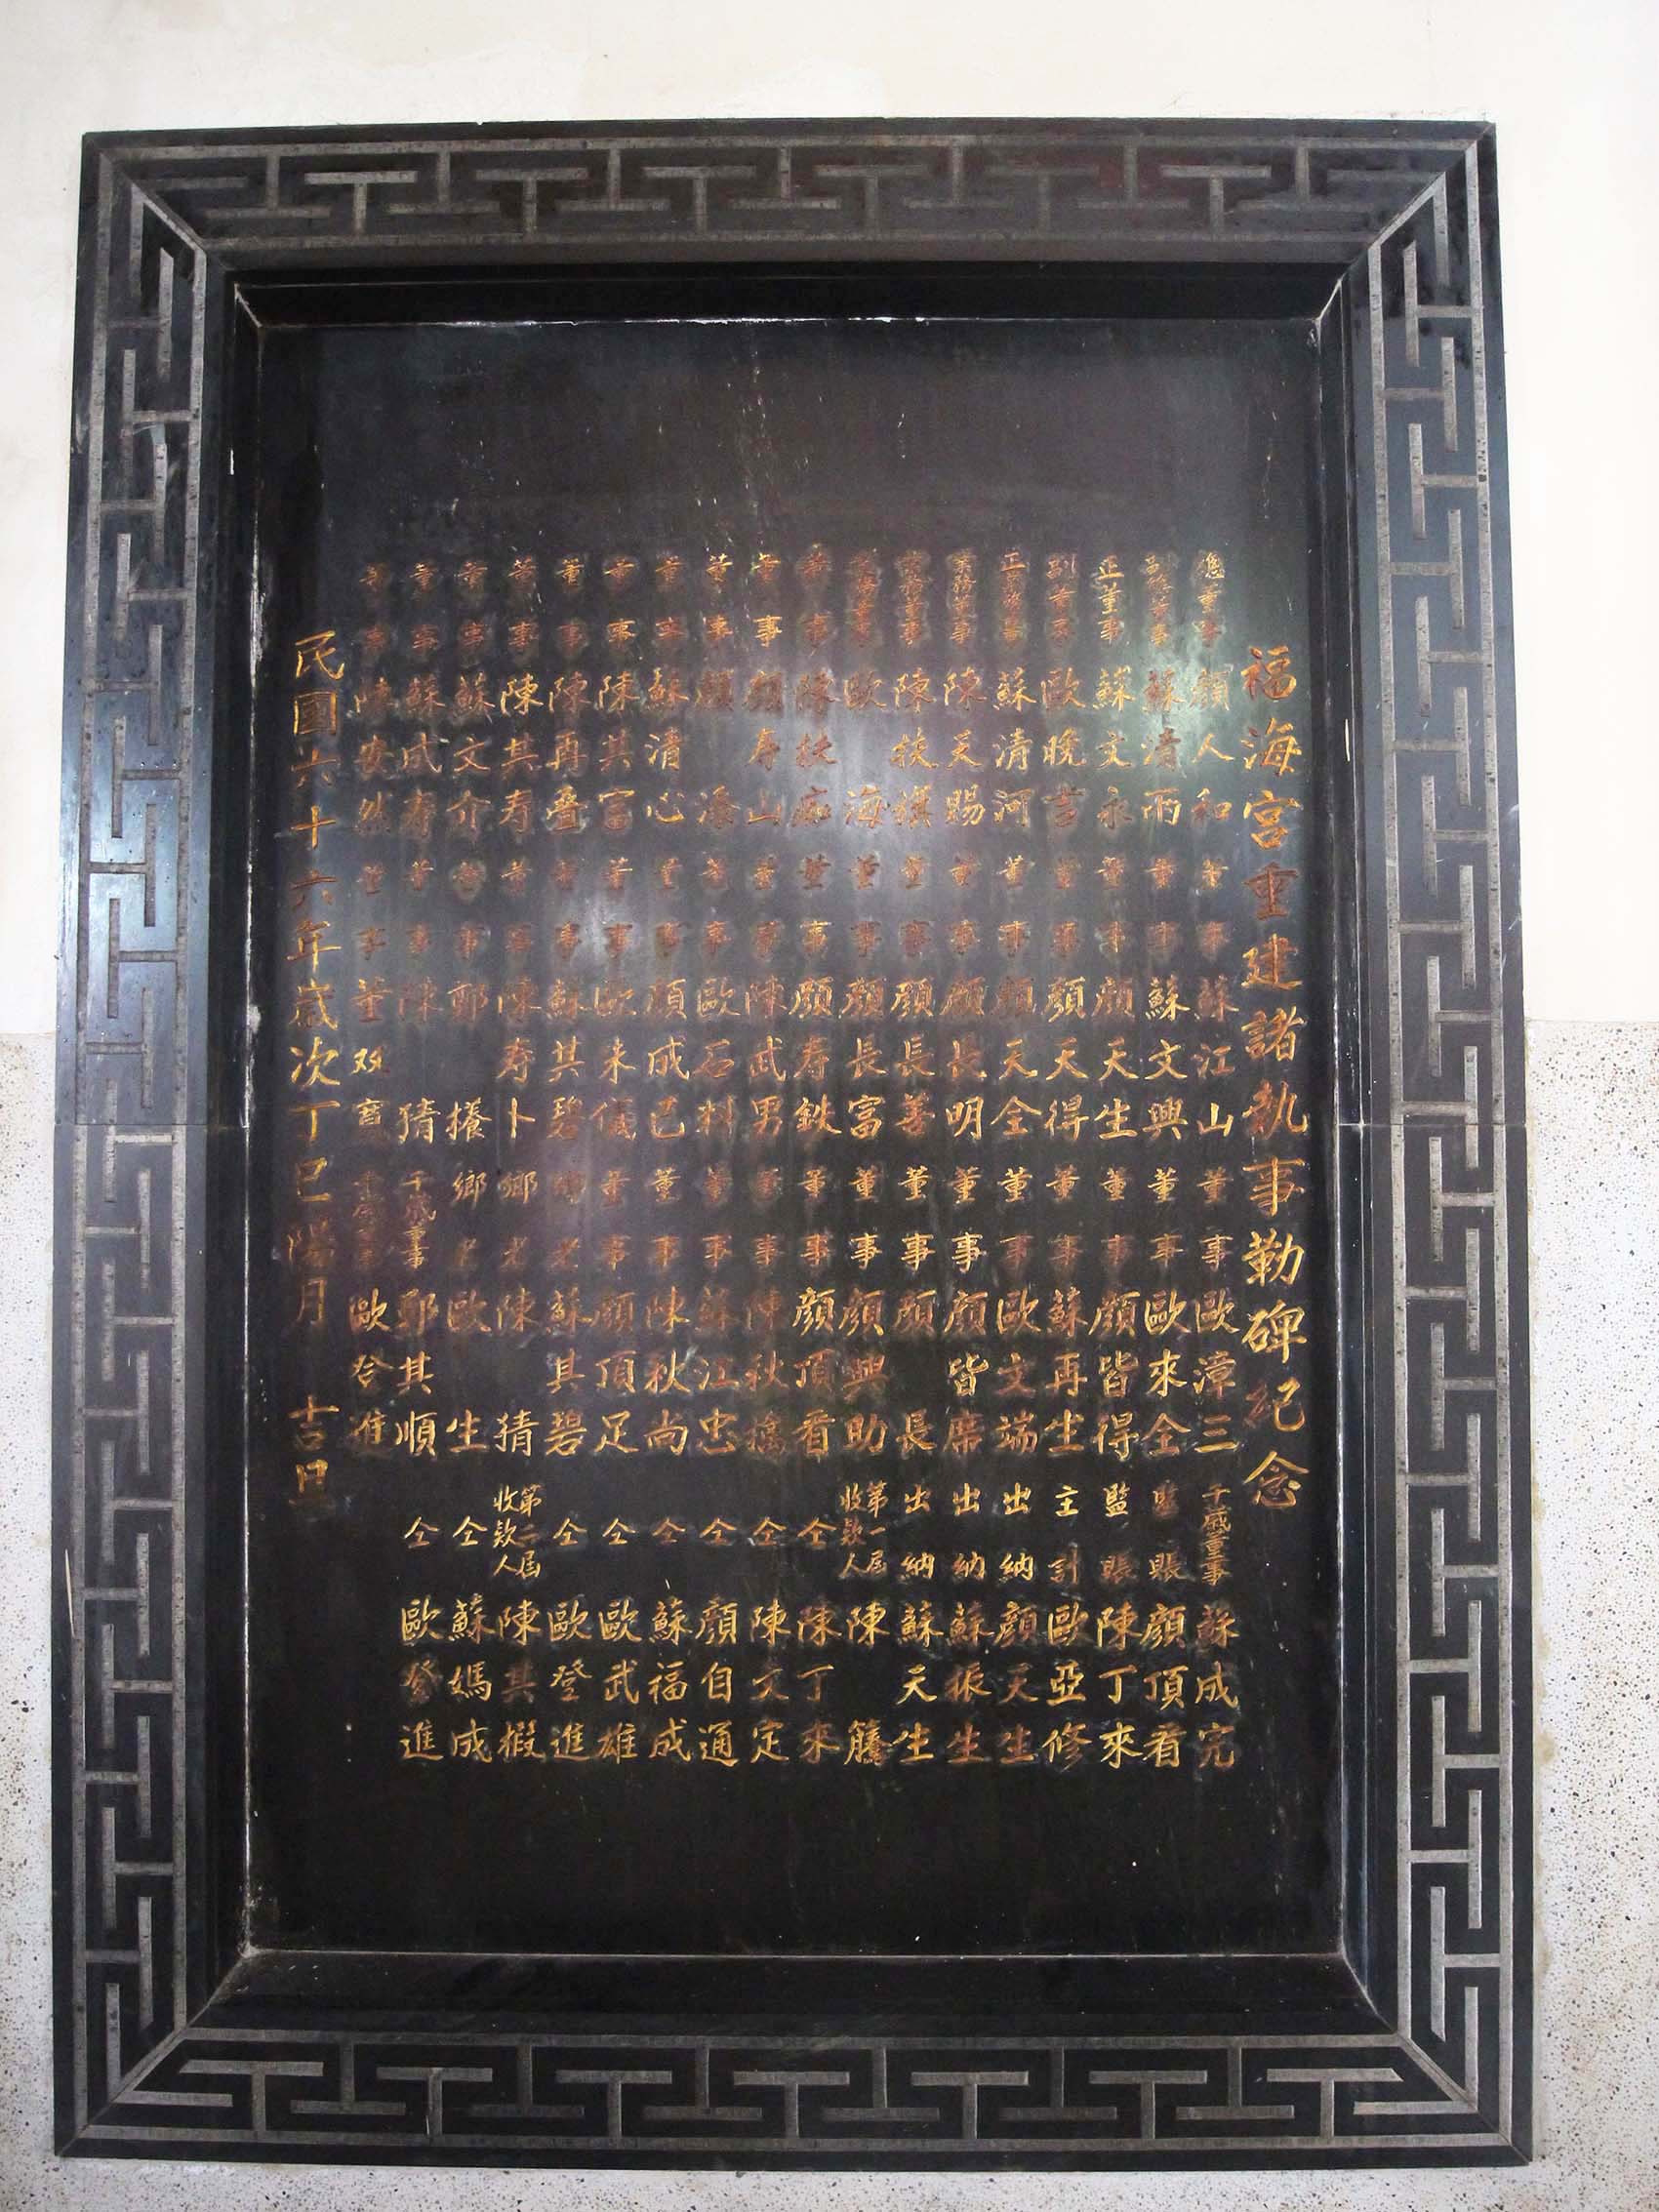 福海宮重建諸執事勒碑紀念
總董事 顏人和 董事 蘇江山 董事 歐漳三 千歲董事 蘇成完
副總董事 蘇清雨 董事 蘇文興 董事 歐來全 監賬 顏頂看
正董事 蘇文永 董事 顏天生 董事 顏皆得 監賬 陳丁來
副董事 歐晚吉 董事 顏天得 董事 蘇再生 主計 歐亞修
蘇清河 董事 顏天全 董事 歐文端 出納 顏天生
陳天賜 董事 顏長明 董事 顏皆 出納 蘇振生
陳扶棋 董事 顏長善 董事 顏長 出納 蘇天生
歐海 董事 顏長富 董事 顏興助 第一屆收款人 陳籐
董事 陳扶 董事 顏寿鉄 董事 顏頂看 仝 陳丁來
董事 顏寿山 董事 陳武男 董事 陳秋 仝 陳文定
董事 顏添 董事 歐石料 董事 蘇江忠 仝 顏自通
董事 蘇清心 董事 顏成已 董事 陳秋尚 仝 蘇福成
董事 陳其富 董事 歐來儀 董事 顏頂足 仝 歐武雄
董事 陳再叠 董事 蘇其碧 鄉老 蘇其碧 仝 歐登進
董事 陳其寿 董事 陳寿卜 鄉老 陳猜 第二屆收款人 陳其椴
董事 蘇文介 董事 鄭 鄉老 歐生 仝 蘇媽成
董事 蘇成寿 董事 陳猜 千歲董事 鄭其順 仝 歐登進
董事 陳安然 董事 董双寶 千歲董事 歐登進
民國六十六年歲次丁巳陽月 吉旦